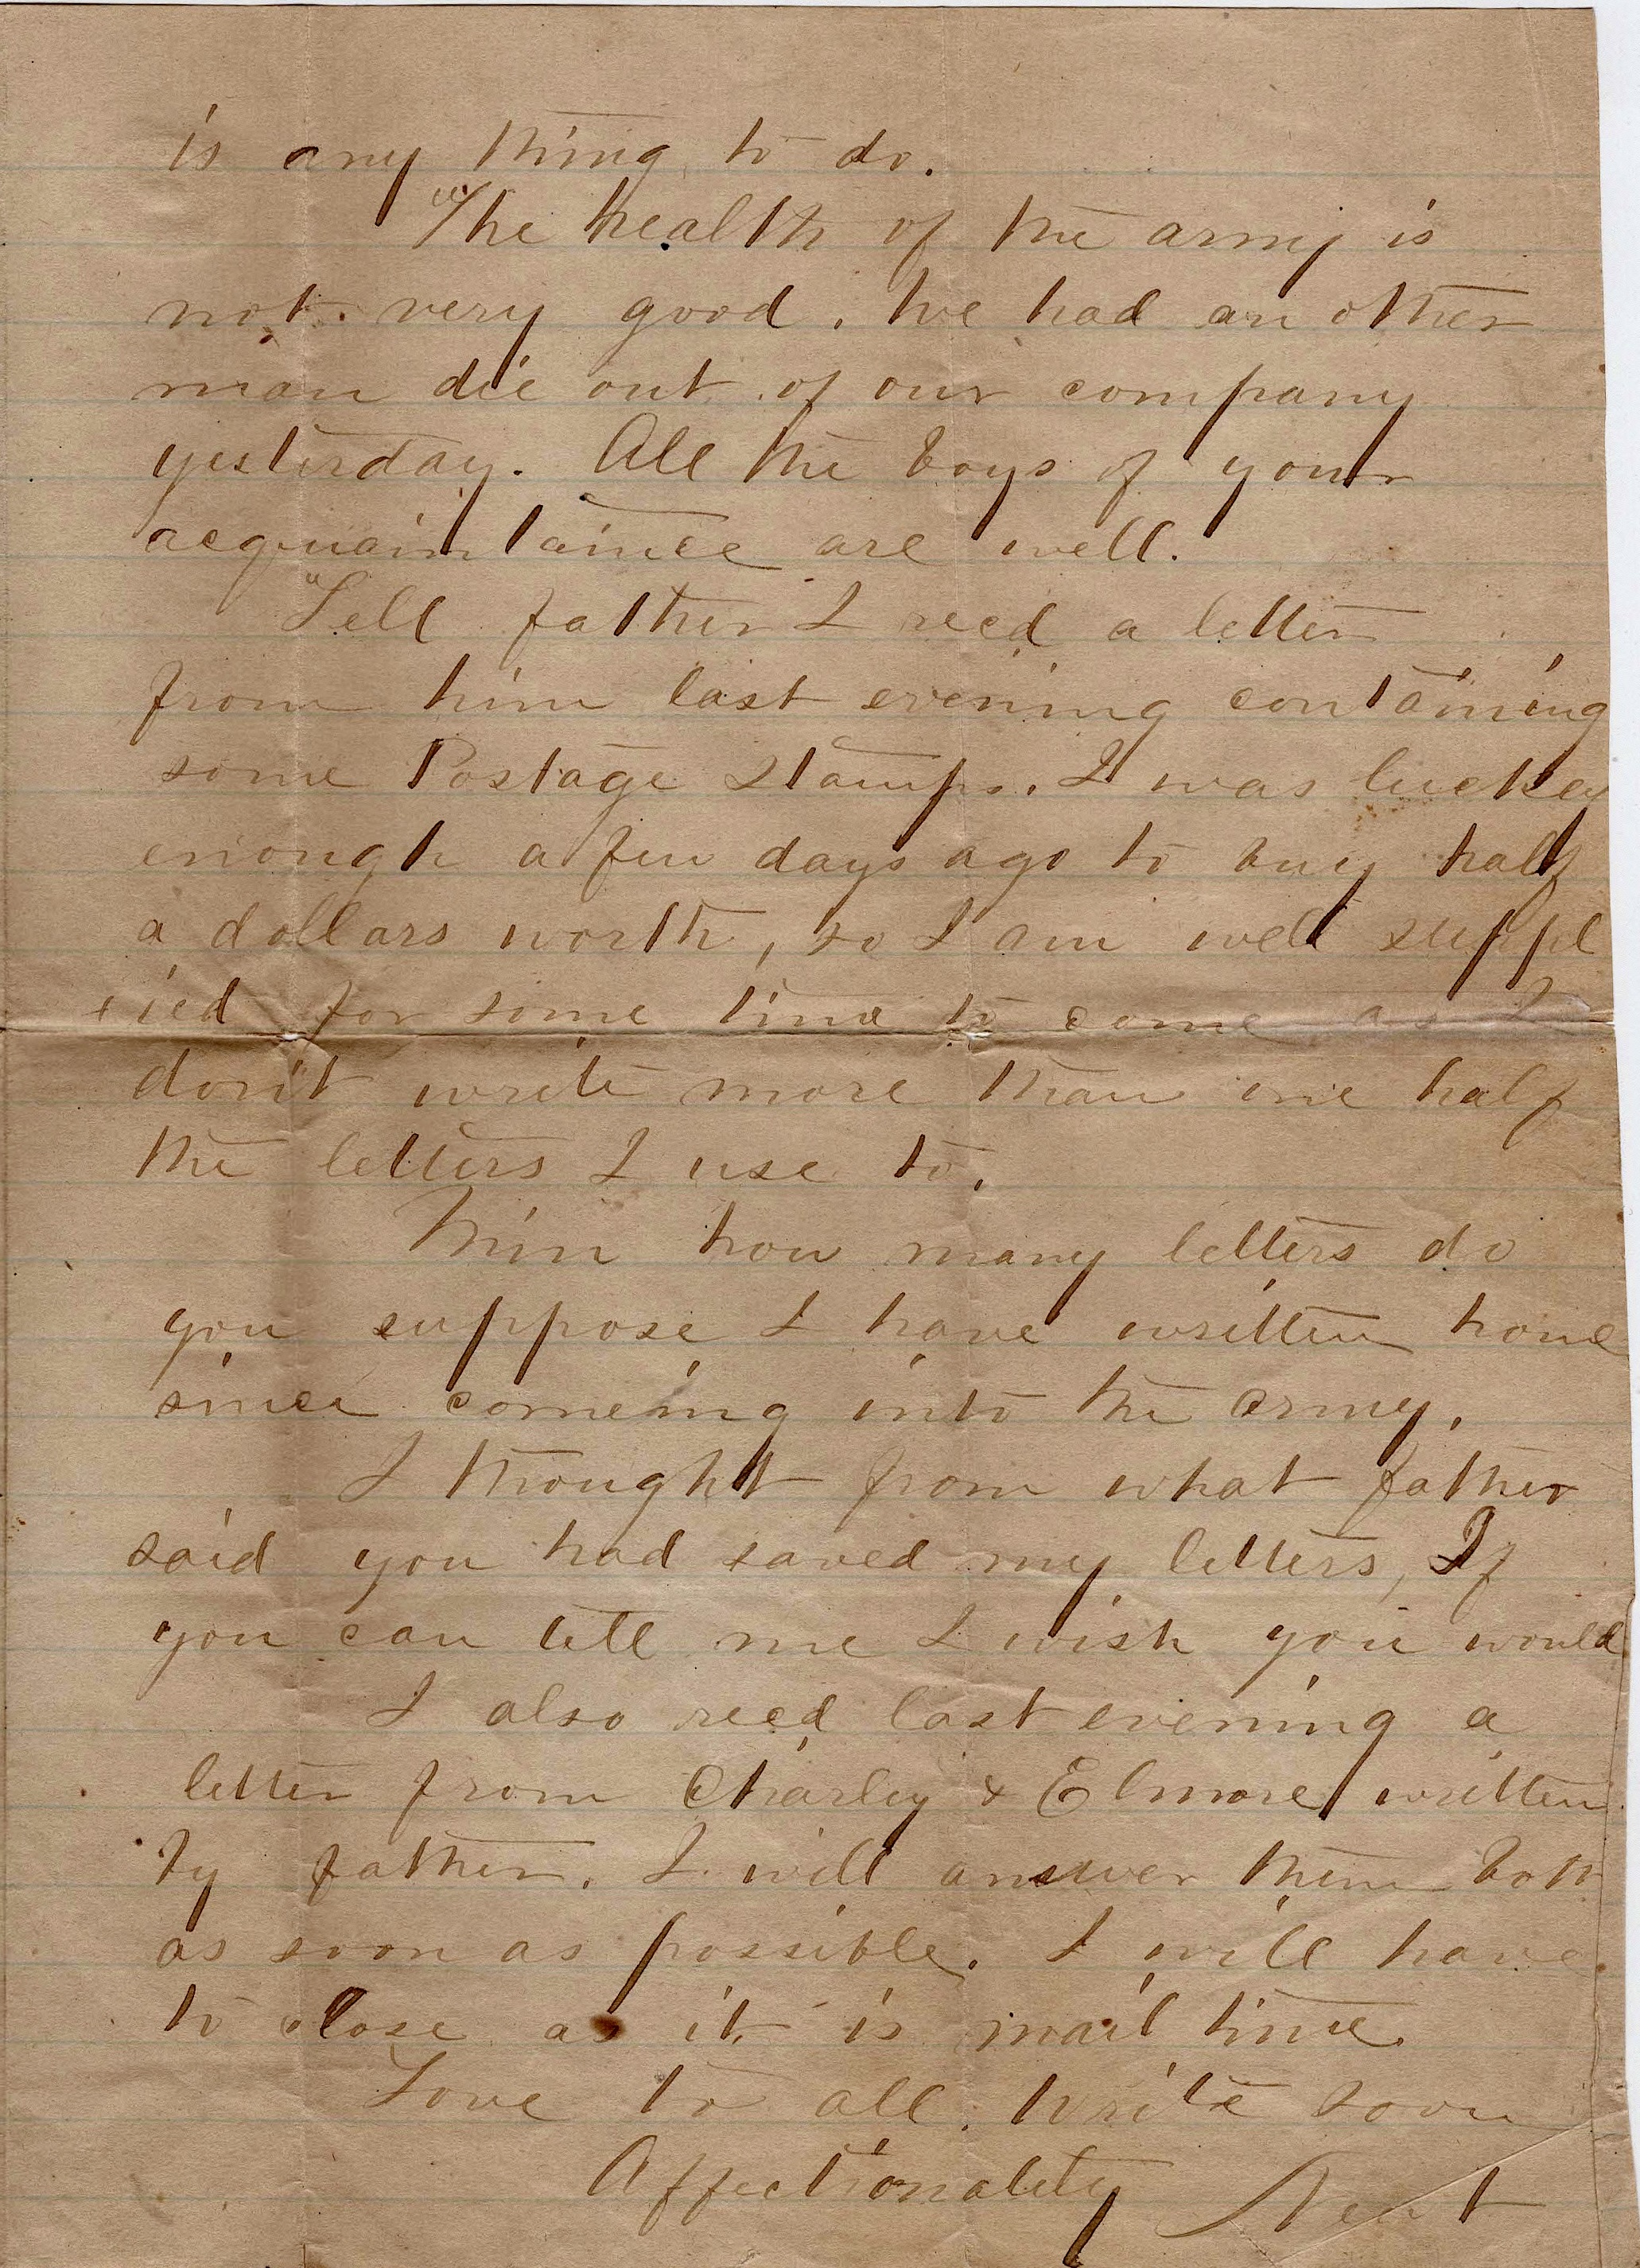 is any thing to do.
The health of the army is
not very good. We had an other
man die out of our company
yesterday. All the boys of your
acquaintaince are well.
Tell father I recd a letter
from him last evening containing
some Postage Stamps. I was luckey
enough a few days ago to buy half
a dollars worth, so I am well suppl
ied for some time to come as I
don't write more than one half
the letters I use to.
Min how many letters do
you suppose I have written home
since comeing into the army.
I thought from what father
said you had saved my letters, If
you can tell me I wish you would
I also recd last evening a
letter from Charley & Elmore written
by father. I will answer them both
as soon as possible. I will have
to close as it is mail time.
Love to all. Write soon
Affectionately Newt